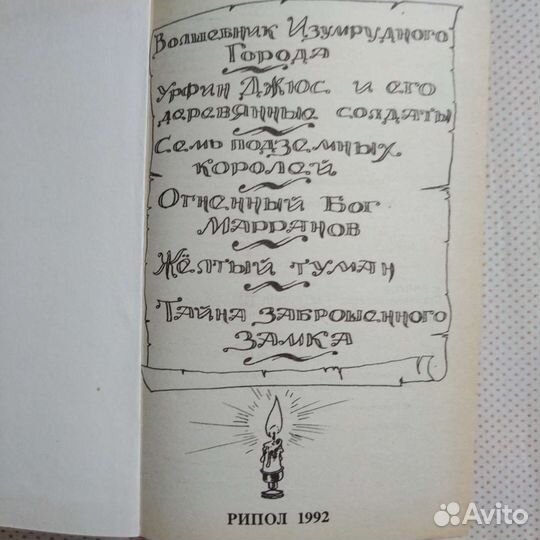 Волшебник Изумрудного
Города
Урфин Джюс и его
деревянные солдаты
Семь подземных
королей
Огненный Бог
Марранов
Жёлтый туман
Тайна заброшенного
замка
РИПОЛ 1992
Avito